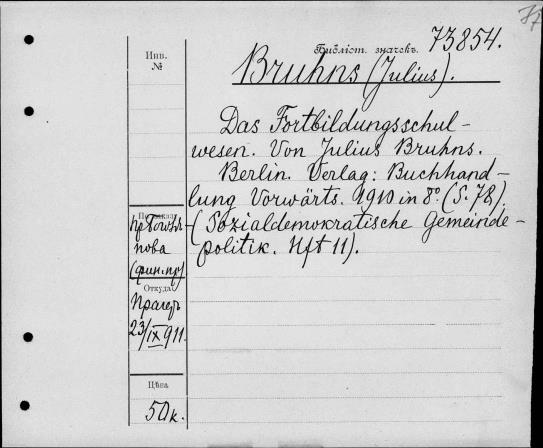 Библіот. значекъ. 73854.
Инв.
№
Bruhns (Julius).
Das Fortbildungsschul-
wesen. Von Julius Bruhns.
Berlin. Verlag: Buchhand-
lung Vorwärts. 1910 in 8° (S. 78).
(Sozialdemokratische Gemeinde-
politik. Hft 11).
пова
(фин. пр)
Откуда
Прагеръ
23/IX 911.
Цѣна
50 к.